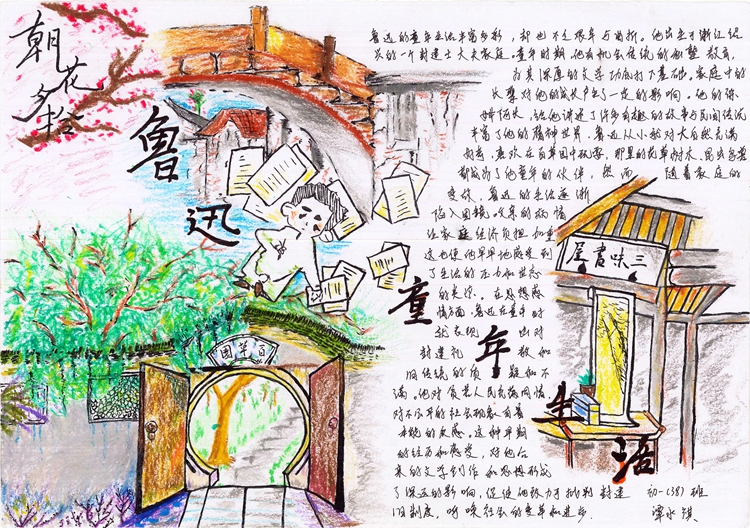 朝花夕拾
鲁迅童年生活
鲁迅的童年生活丰富多彩，却也不乏艰辛与曲折。他出生于浙江绍
兴的一个封建士大夫家庭。童年时期，他有机会传统的私塾教育，
为其深厚的文学功底打下基础。家庭中的
长辈对他的成长产生了一定的影响。他的保
姆阿长，给他讲述了许多有趣的故事与民间传说
丰富了他的精神世界。鲁迅从小就对大自然充满
好奇，喜欢在百草园中玩耍，那里的花草树木、昆虫鸟兽
都成为了他童年的伙伴，然而 随着家庭的
变故，鲁迅的生活逐渐
陷入困境，父亲的病情
让家庭经济负担加重
这也使他早早地感受到
了生活的压力和世态
的炎凉。在思想感
情方面，鲁迅在童年时
就表现 出对
封建礼 教和
旧传统的质 疑和不
满。他对贫苦人民充满同情
对不公平的社会现象有着
本能的反感。这种早期
的经历和感受，对他后
来的文学创作和思想形成
了深远的影响，促使他致力于批判封建
旧制度，呼唤社会的变革和进步。
百草园
三味書屋
初一(38)班